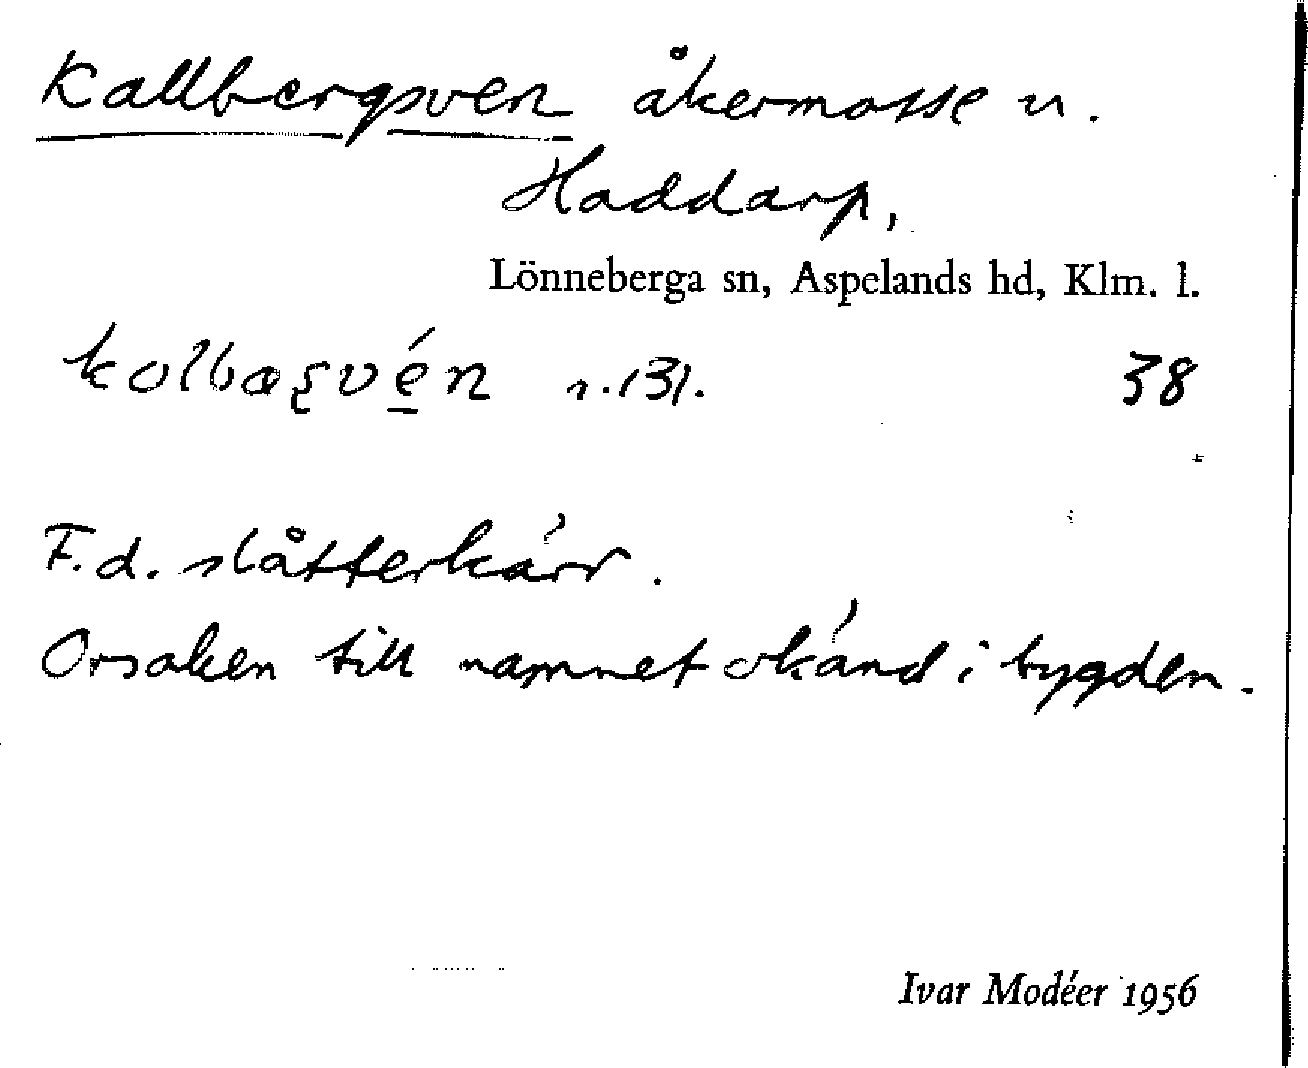 Kallbergsven åkermosse u.
Haddarp,
Lönneberga sn, Aspelands hd, Klm. l.
kolbæșvé̠n 38
F.d. slåtterkärr.
Orsaken till namnet okänd i bygden.
Ivar Modéer 1956